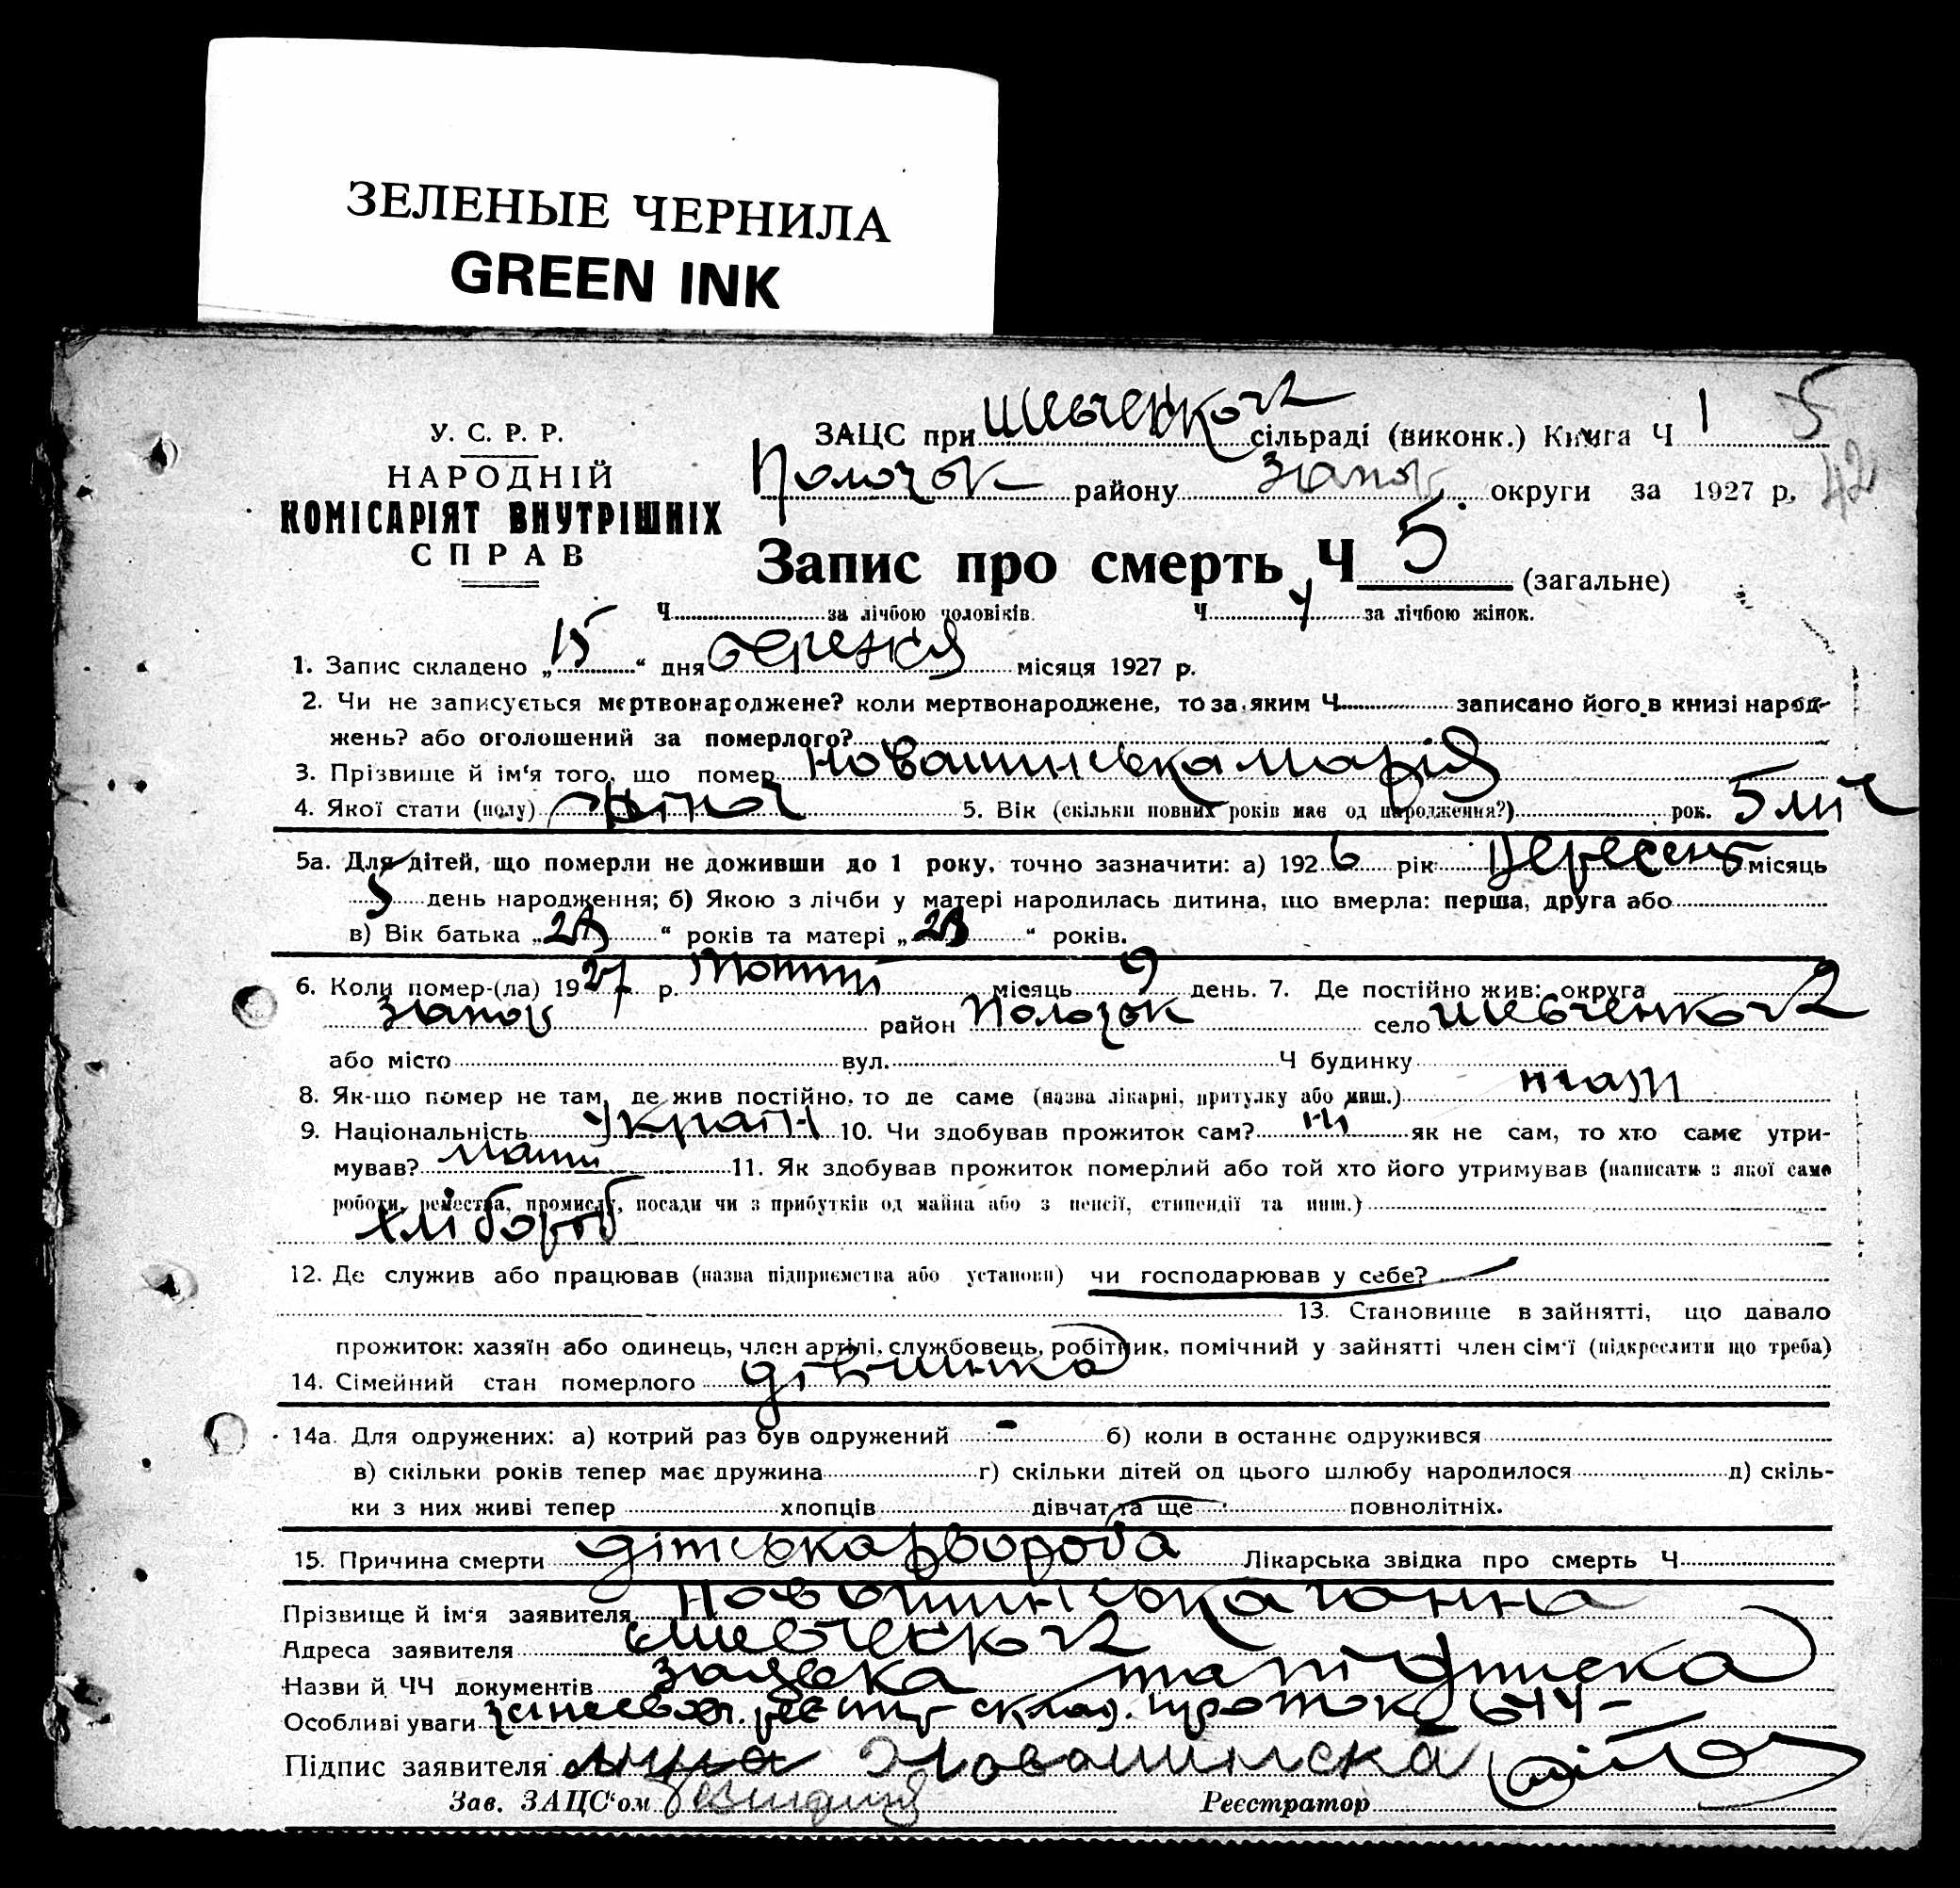 ЗЕЛЕНЫЕ ЧЕРНИЛА
GREEN INK
У. С. Р. Р.
НАРОДНІЙ
КОМІСАРІЯТ ВНУТРІШНІХ
СПРАВ
ЗАЦС при сільраді (виконк.) Книга Ч 1 5
району Запор округи за 1927 р. 42
Запис про смерть Ч 5 (загальне)
Ч за лічбою чоловіків. Ч за лічбою жінок.
1. Запис складено „15“ дня березня місяця 1927 р.
2. Чи не записується мертвонароджене? коли мертвонароджене, то за яким Ч записано його в книзі народ-
жень? або оголошений за померлого?
3. Прізвище й ім‘я того, що помер Новашинська Марія
4. Якої стати (полу) жіноч 5. Вік (скільки повних років має од народження?) рок. 5 міс
5а. Для дітей, що померли не доживши до 1 року, точно зазначити: а) 1926 рік Вересень місяць
5 день народження; б) Якою з лічби у матері народилась дитина, що вмерла: перша, друга або
в) Вік батька „ “ років та матері „ “ років.
6. Коли помер-(ла) 1927 р. Лютий місяць 9 день. 7. Де постійно жив: округа
Запор район село
або місто вул. Ч будинку
8. Як-що помер не там, де жив постійно, то де саме (назва лікарні, притулку або инш.) там
9. Національність Україн 10. Чи здобував прожиток сам? ні як не сам, то хто саме утри-
мував? мати 11. Як здобував прожиток померлий або той хто його утримував (написати з якої саме
роботи, ремества, промислу, посади чи з прибутків од майна або з пенсії, стипендії та инш.)
хлібороб
12. Де служив або працював (назва підприємства або установи) чи господарював у себе?
13. Становище в зайнятті, що давало
прожиток: хазяїн або одинець, член артілі, службовець, робітник, помічний у зайнятті член сім‘ї (підкреслити що треба)
14. Сімейний стан померлого дівчинка
14а. Для одружених: а) котрий раз був одружений - б) коли в останнє одружився
в) скільки років тепер має дружина г) скільки дітей од цього шлюбу народилося д) скіль-
ки з них живі тепер хлопців дівчат та ще повнолітніх.
15. Причина смерти дітська хвороба Лікарська звідка про смерть Ч
Прізвище й ім‘я заявителя Новошинська Ганна
Адреса заявителя
Назви й ЧЧ документів заявка та підписка
Особливі уваги склад. проток
Підпис заявителя Новашинска
Зав. ЗАЦС‘ом Реєстратор